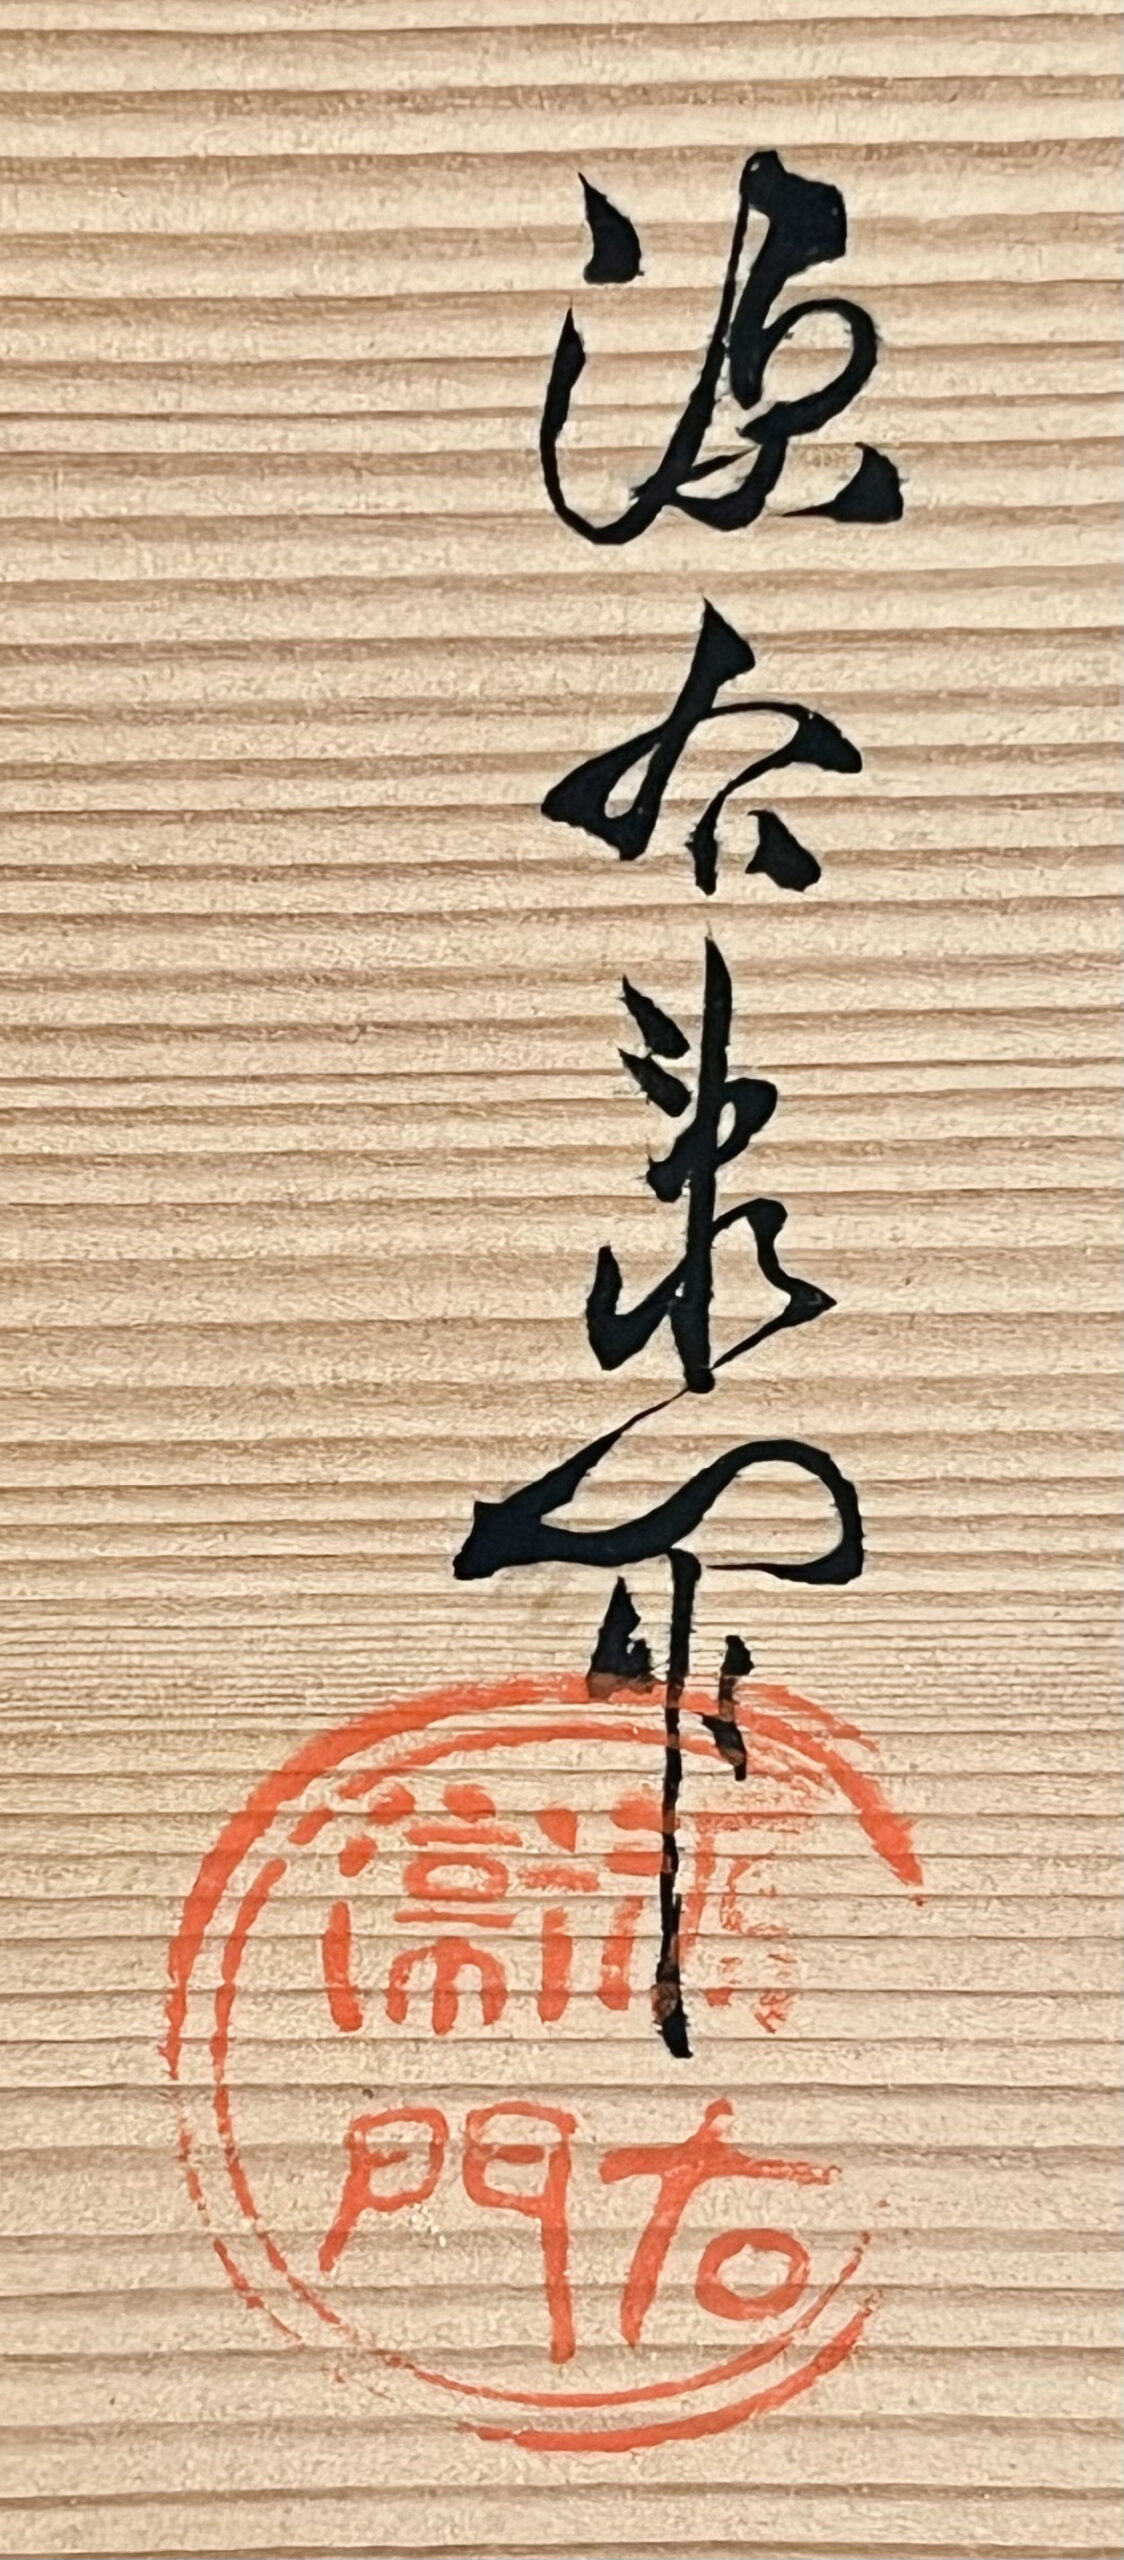 源右衛門
源右
衛門